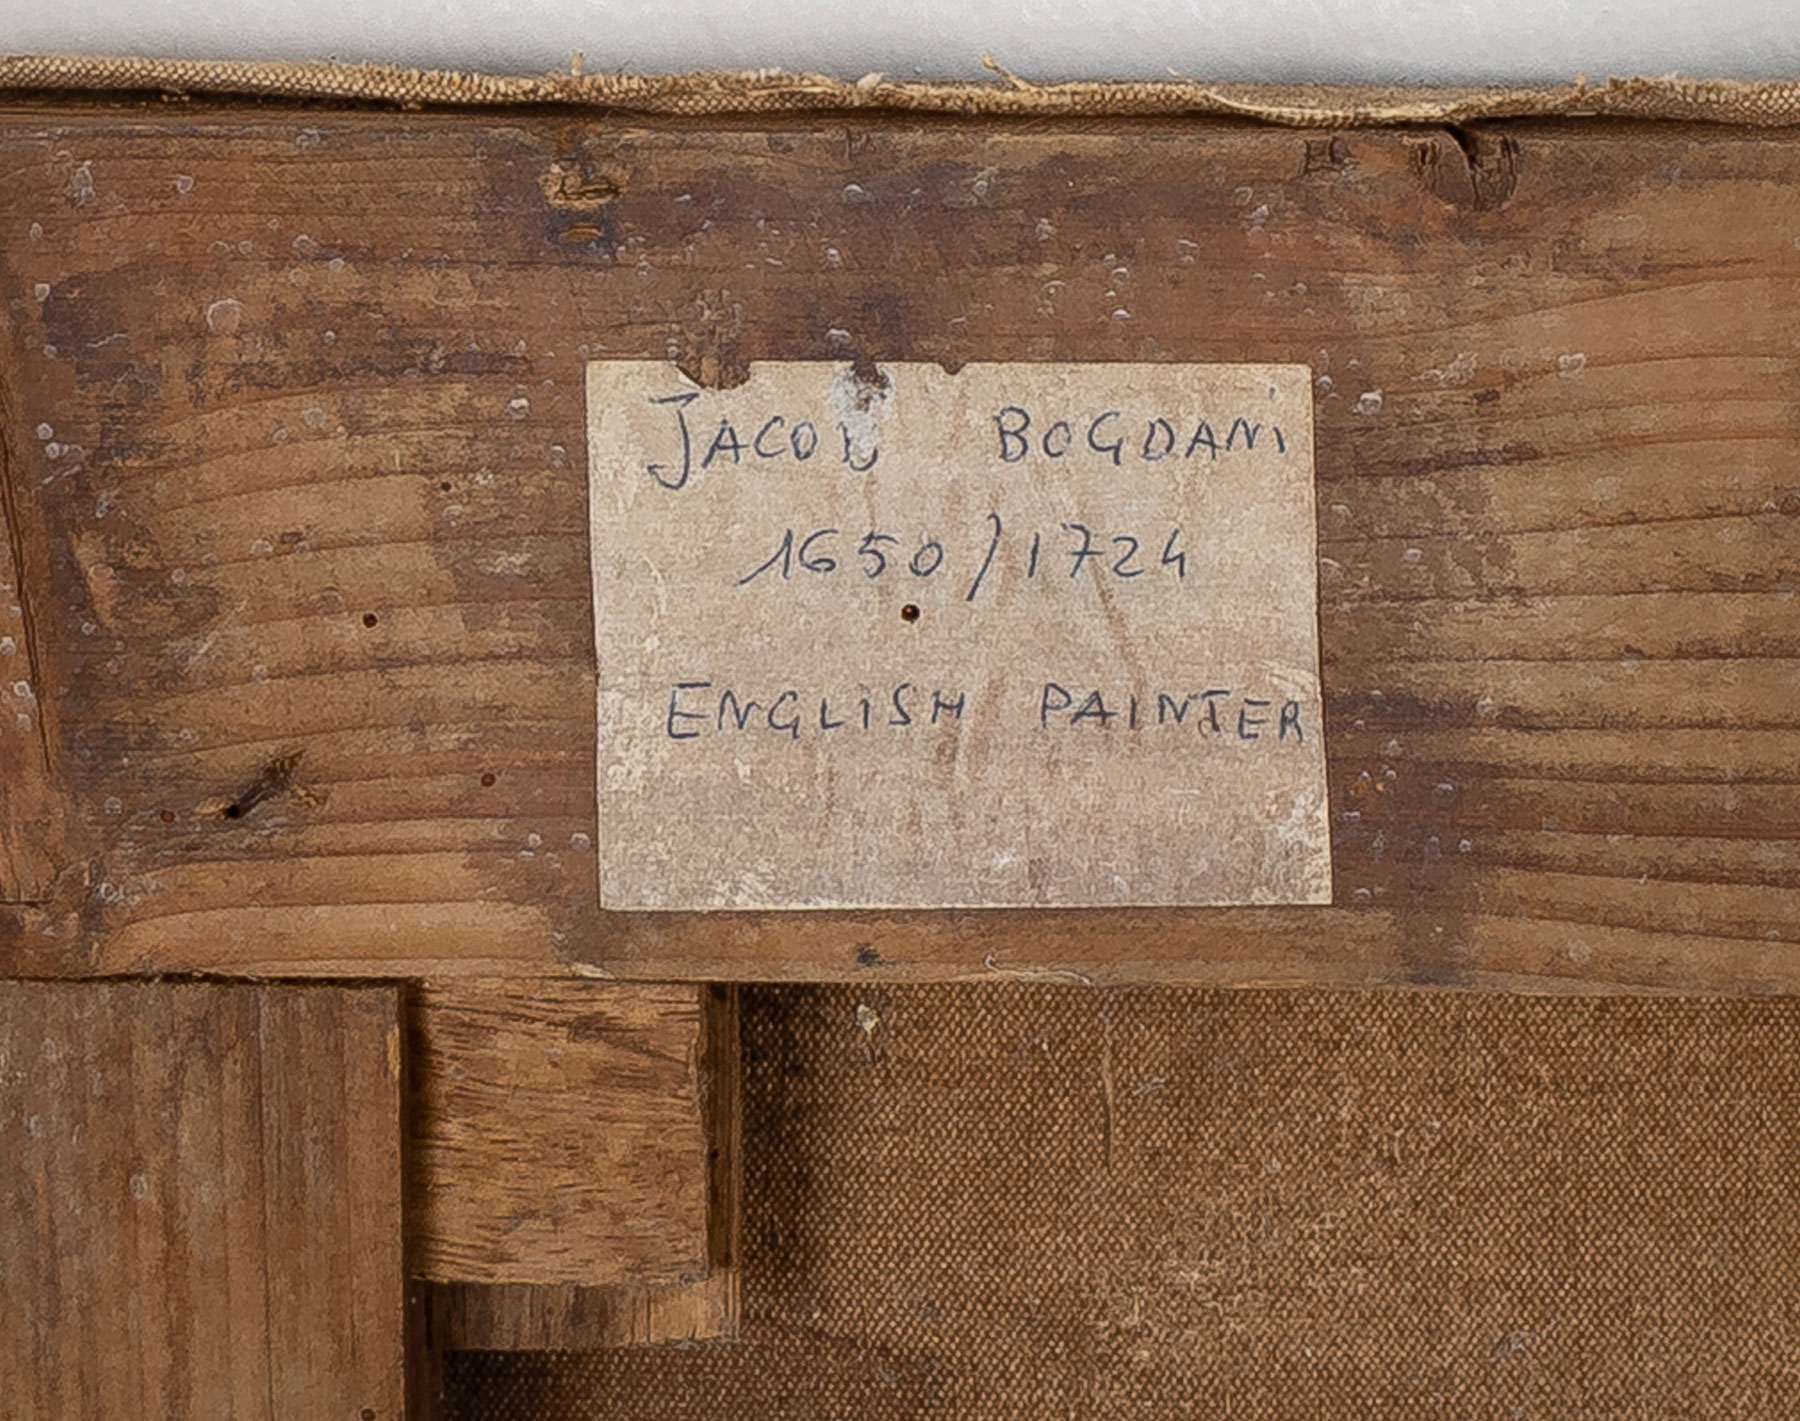 JACOB BOGDANI
1650/1724
ENGLISH PAINTER